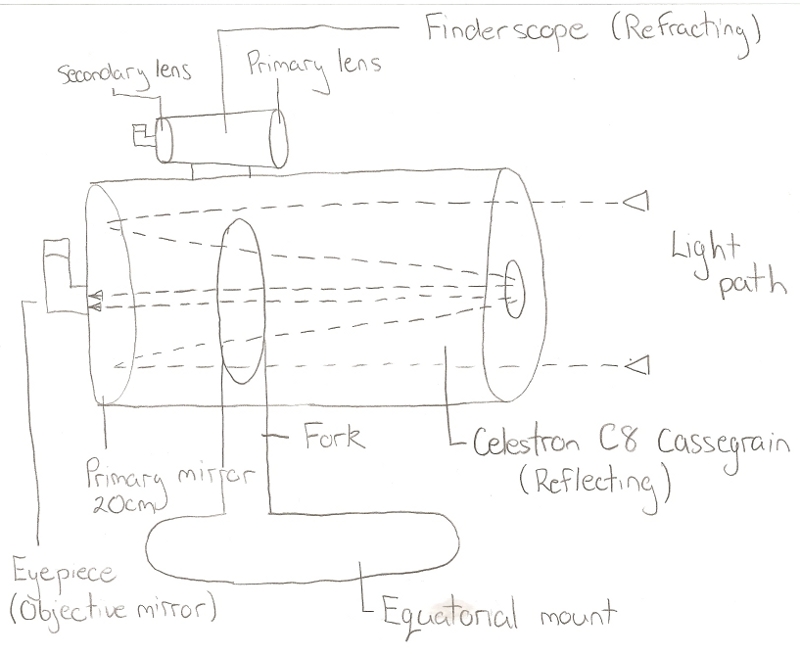 Finderscope (Refracting)
Secondary lens
Primary lens
Light
path
Fork
Celestron C8 Cassegrain
(Reflecting)
Primary mirror
20cm
Eyepiece
(Objective mirror)
Equatorial mount